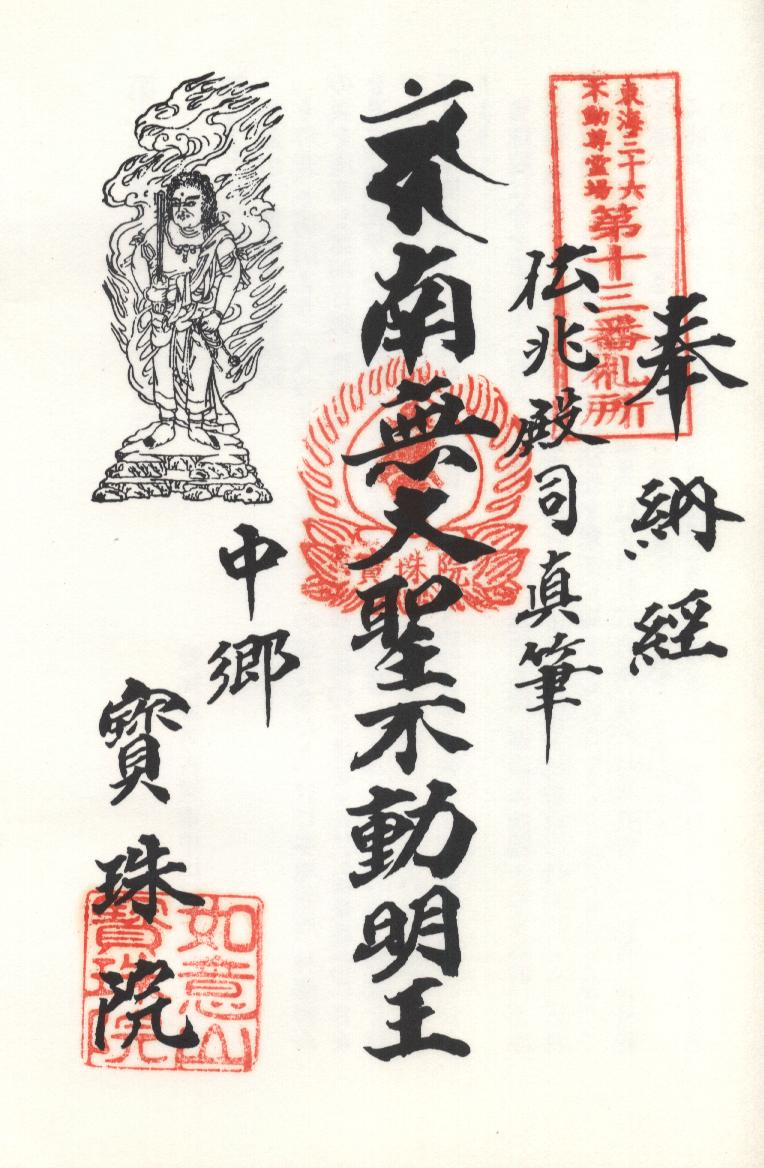 東海三十六
不動尊霊場
第十三番札所
奉納経
伝兆殿司真筆
南無大聖不動明王
寳珠院
中郷
寳珠院
如意山
寳珠院